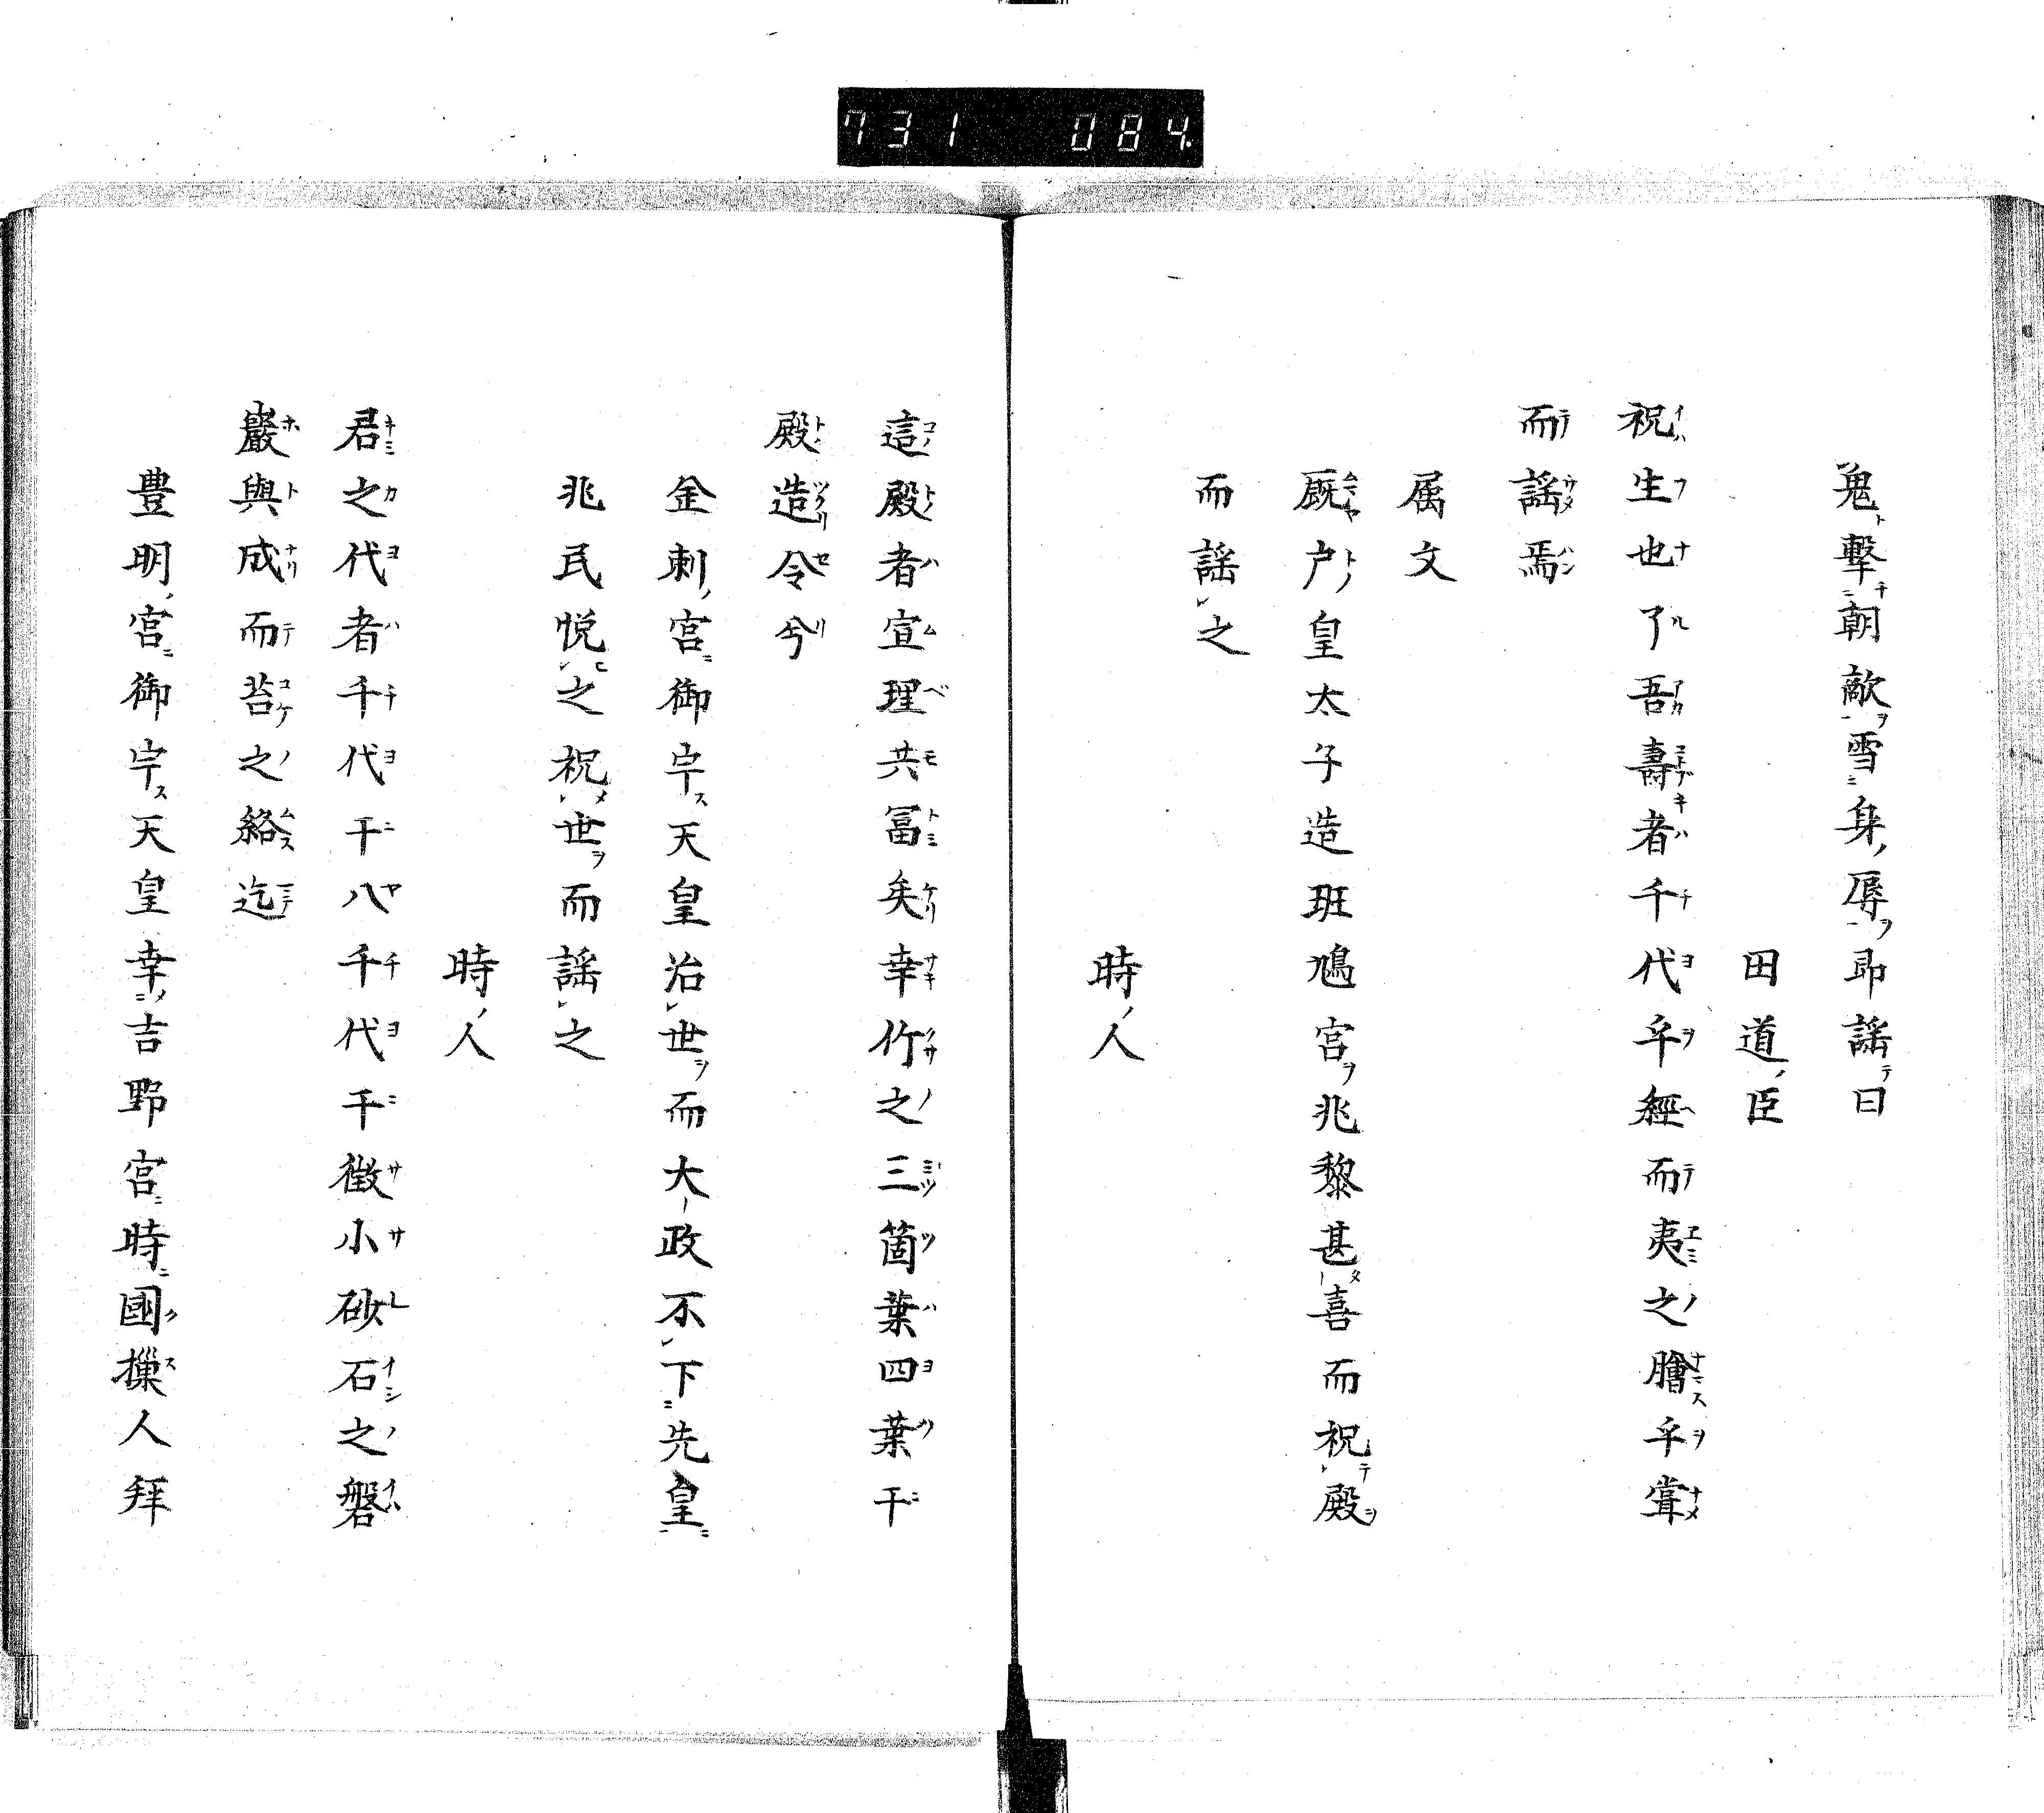 731 084
鬼撃朝敵雪身辱即謡曰
田道臣
祝生也了吾壽者千代乎經而夷之膾乎甞
而謡焉
属文
厩戸皇太子造班鳩宮兆黎甚喜而祝殿
而謡之
時人
這殿者宣理共冨矣幸竹之三箇葉四葉干
殿造令兮
金刺宮御宇天皇治世而大政不下先皇
兆民悦之祝世而謡之
時人
君之代者千代干八千代干徴小砂石之磐
巖與成而苔之絡迄
豊明宮御宇天皇幸吉野宮時國樔人拜